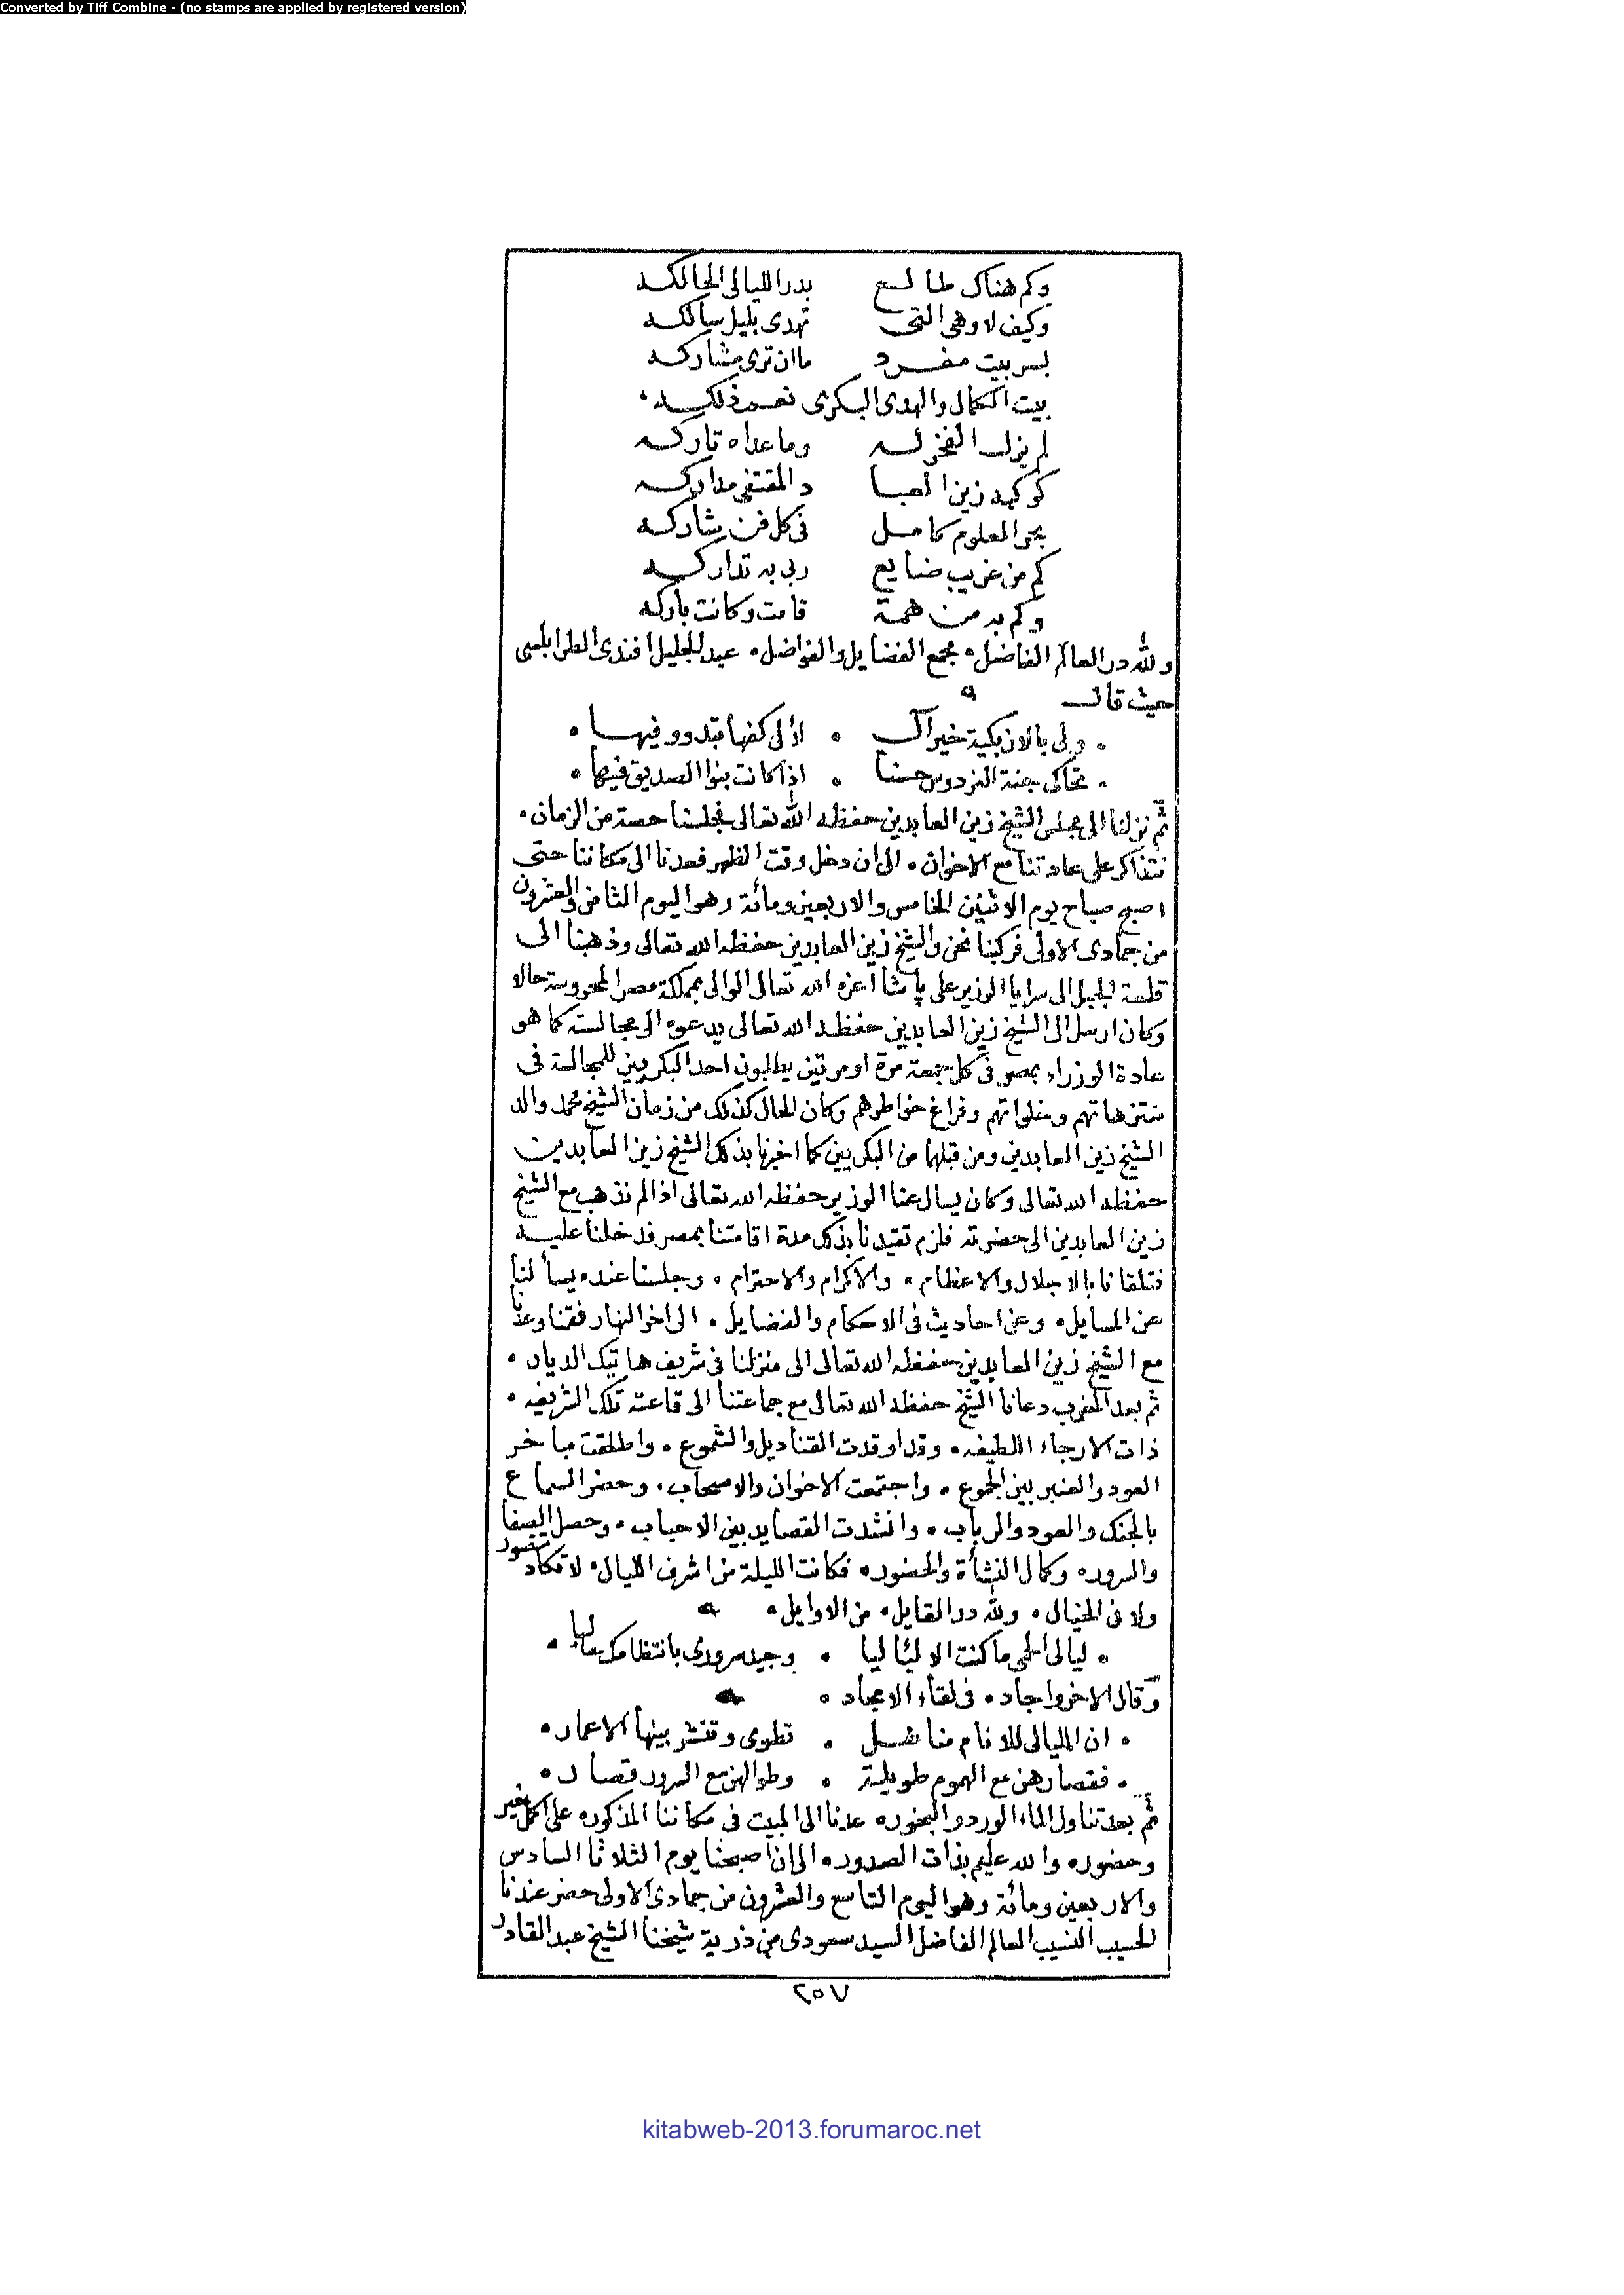 Converted by Tiff Combine - (no stamps are applied by registered version)
وكم هناك طالع بدر الليالى الحالكه
وكيف لا وهى التى تهدى بليل سالكه
بسر بيت مفرد ما ان ترى مشاركه
بيت الكمال والهدى البكرى نعم ذلكه
لم يزل الفخر له وما عداه تاركه
كوكبه زين العبا د المقتفى مداركه
بحر العلوم كامل فى كل فن شاركه
كم من غريب ضايع ربى به تداركه
وكم به من همة قامت وكانت باركه
ولله در العالم الفاضل، مجمع الفضايل والفواضل، عبد الجليل افندى الطرابلسى
حيث قال
ولى بالازبكية خير آل لأن كفها تبدو وفيها
تحاكى جنة الفردوس حسنا اذا كانت بنوا الصديق فيها
ثم نزلنا الى مجلس الشيخ زين العابدين حفظه الله تعالى فجلسنا حصة من الزمان،
نتذاكر على عادتنا مع الاخوان، الى ان دخل وقت الظهر فعدنا الى مكاننا حتى
اصبح صباح يوم الاثنين الخامس والاربعين ومائة وهو اليوم الثامن والعشرون
من جمادى الاولى فركبنا نحن والشيخ زين العابدين حفظه الله تعالى وذهبنا الى
قلعة الجبل الى سرايا الوزير على پاشا اعزه الله تعالى الوالى بمملكة مصر المحروسة حالا
وكان ارسل الى الشيخ زين العابدين حفظه الله تعالى يدعوه الى مجالسته كما هو
عادة الوزراء بمصر فى كل جمعة مرة او مرتين يطلبون احد البكريين للمجالسة فى
منتزهاتهم وخلواتهم وفراغ خواطرهم وكان الحال كذلك من زمان الشيخ محمد والد
الشيخ زين العابدين ومن قبلهما من البكريين كما اخبرنا بذلك الشيخ زين العابدين
حفظه الله تعالى وكان يسال عنا الوزير حفظه الله تعالى اذا لم نذهب مع الشيخ
زين العابدين الى حضرته فلزم تقيدنا بذلك مدة اقامتنا بمصر فدخلنا عليه
فتلقانا بالاجلال والاعظام، والاكرام والاحترام، وجلسنا عنده يسألنا
عن المسايل، وعن احاديث فى الاحكام والفضايل، الى اخر النهار فقمنا وعدنا
مع الشيخ زين العابدين حفظه الله تعالى الى منزلنا فى شريف هاتيك الديار،
ثم بعد المغرب دعانا الشيخ حفظه الله تعالى مع جماعتنا الى قاعته تلك الشريفه،
ذات الارجاء اللطيفه، وقد اوقدت القناديل والشموع، واطلقت مباخر
العود والعنبر بين الجموع، واجتمعت الاخوان والاصحاب، وحضر السماع
بالجنك والعود والرباب، وانشدت القصايد بين الاحباب، وحصل الصفا
والسرور، وكمال النشأة والحضور، فكانت الليلة من اشرف الليال، لا تكاد تتصور
ولا فى الخيال، ولله در القايل، من الاوايل،
ليالى الحمى ما كنت الا لئاليا وجيد سرورى بانتظامك حاليا
وقال الاخر واجاد، فى لقاء الامجاد،
ان الليالى للانام مناهل تطوى وتنشر بينها الاعمار
فقصارهن مع الهموم طويلة وطوالهن مع السرور قصار
ثم بعد تناول الماء الورد والبخور، عدنا الى المبيت فى مكاننا المذكور، على اكمل خير
وحضور، والله عليم بذات الصدور، الى ان اصبحنا يوم الثلاثا السادس
والاربعين ومائة وهو اليوم التاسع والعشرون من جمادى الاولى حضر عندنا
الحسيب النسيب العالم الفاضل السيد سعودى من ذرية شيخنا الشيخ عبد القادر
٢٥٧
kitabweb-2013.forumaroc.net